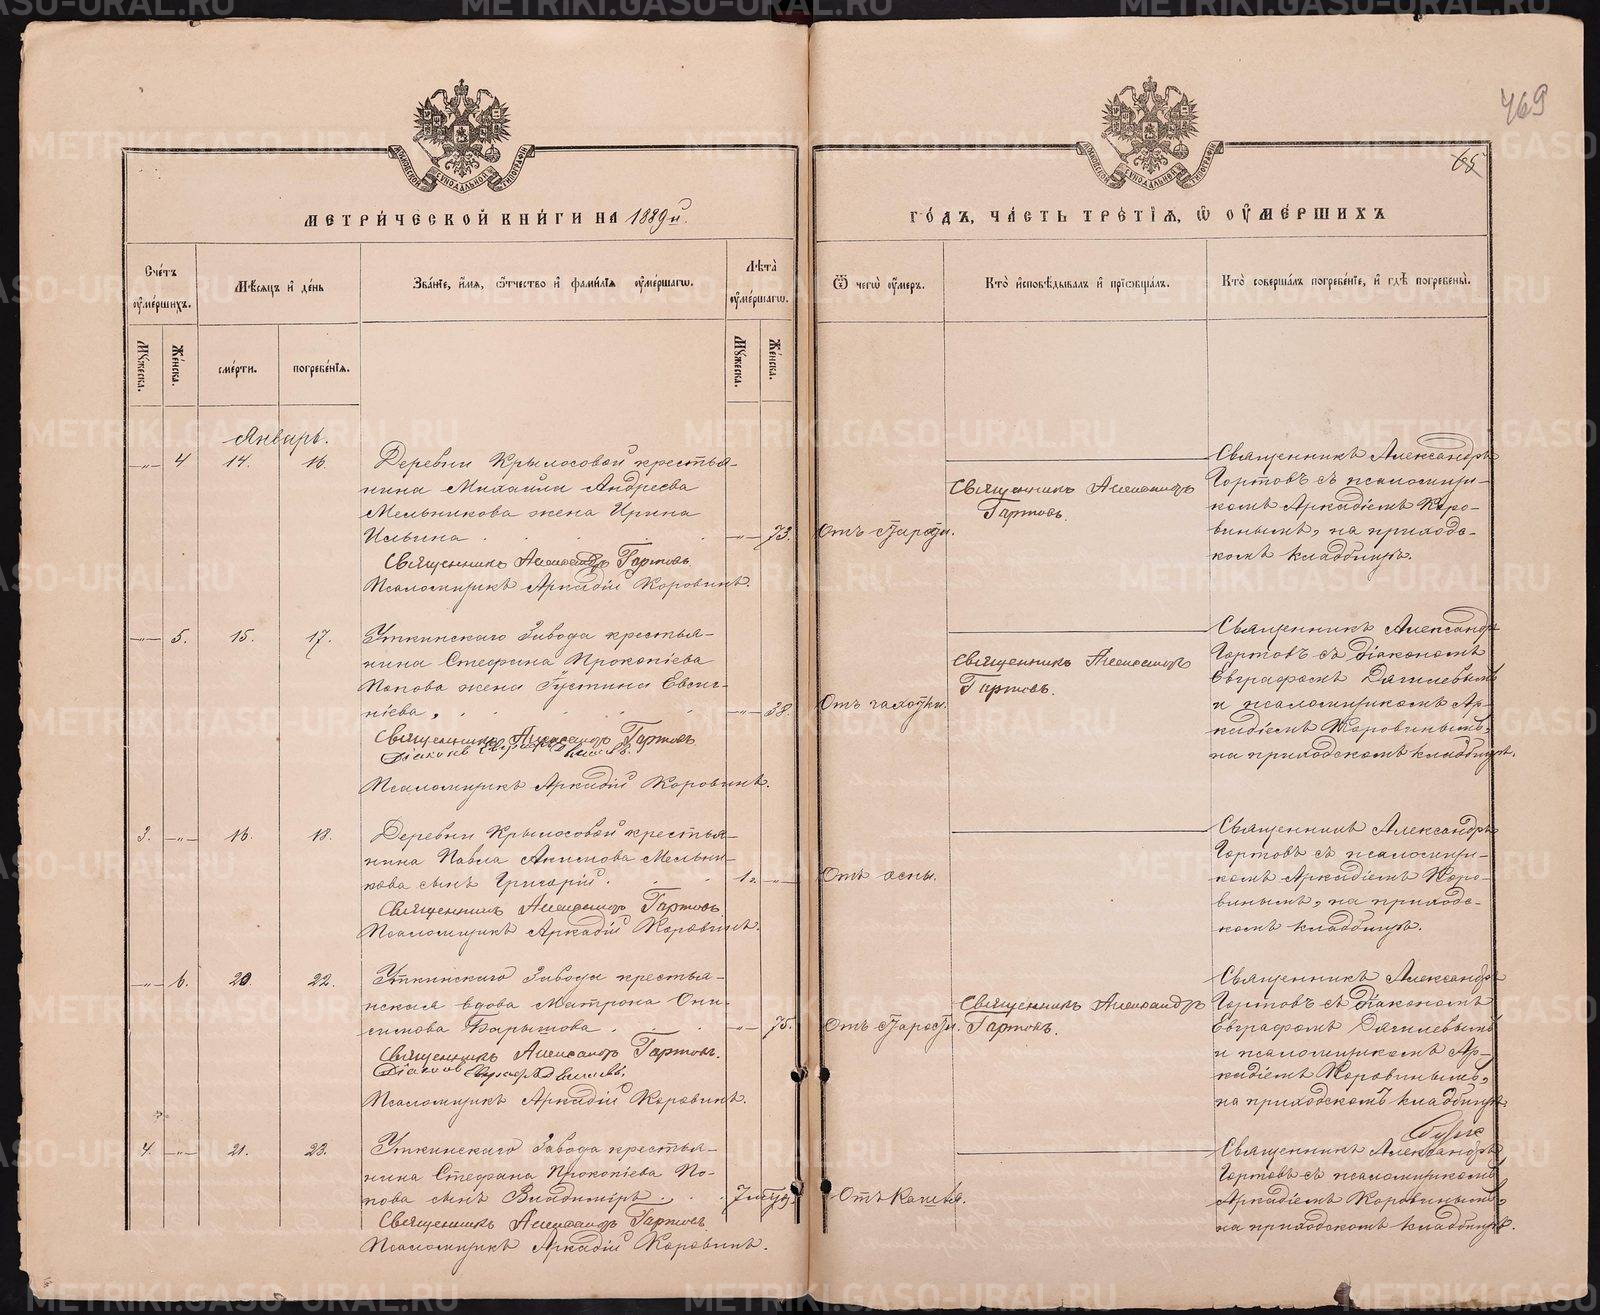 469
65
МОСКОВСКОЙ СУНОДАЛЬНОЙ ТИПОГРАФІИ
МОСКОВСКОЙ СУНОДАЛЬНОЙ ТИПОГРАФІИ
МЕТРИЧЕСКОЙ КНИГИ НА 1889й
ГОДЪ, ЧАСТЬ ТРЕТІЯ, Ѿ ОУМЕРШИХЪ
Счетъ оумершихъ.
Мѣсяцъ и день
Званіе, имя, ѿтчество и фамилія оумершагѡ.
Лѣта оумершагѡ.
Ѿ чегѡ оумеръ.
Кто исповѣдывалъ и пріѡбщалъ.
Кто совершалъ погребеніе, и гдѣ погребены.
Мужеска.
Женска.
смерти.
погребенія.
Мужеска.
Женска.
Январь.
—"— 4 14. 16.
Деревни Крылосовой крестья-
нина Михаила Андреева
Мельникова жена Ирина
Ильина . . . . —"— 73.
Священникъ Александръ Гортовъ
Псаломщикъ Аркадій Коровинъ.
Отъ старости.
Священникъ Александръ
Гортовъ.
Священникъ Александръ
Гортовъ съ псаломщи-
комъ Аркадіемъ Коро-
винымъ, на приходс-
комъ кладбищѣ.
—"— 5. 15. 17.
Уткинскаго Завода крестья-
нина Стефана Прокопіева
Попова жена Іустина Евсиг-
ніева, . . . . —"— 38.
Священникъ Александръ Гортовъ
Діаконъ Евграфъ
Псаломщикъ Аркадій Коровинъ.
Отъ чахотки.
Священникъ Александръ
Гортовъ.
Священникъ Александръ
Гортовъ съ Діакономъ
Евграфомъ Дягилевымъ
и псаломщикомъ Ар-
кадіемъ Коровинымъ,
на приходскомъ кладбищѣ.
3. —"— 16. 18.
Деревни Крылосовой крестья-
нина Павла Акимова Мельни-
кова сынъ Григорій . . . 1 г. —"—
Священникъ Александръ Гортовъ
Псаломщикъ Аркадій Коровинъ.
Отъ оспы.
Священникъ Александръ
Гортовъ съ псаломщи-
комъ Аркадіемъ Коро-
винымъ, на приходс-
комъ кладбищѣ.
—"— 6. 20. 22.
Уткинскаго Завода крестья-
нская вдова Матрона Они-
симова Барышова . . . —"— 75.
Священникъ Александръ Гортовъ.
Діаконъ Евграфъ
Псаломщикъ Аркадій Коровинъ.
Отъ старости.
Священникъ Александръ
Гортовъ.
Священникъ Александръ
Гортовъ съ Діакономъ
Евграфомъ Дягилевымъ
и псаломщикомъ Ар-
кадіемъ Коровинымъ,
на приходскомъ кладбищѣ.
4. —"— 21. 23.
Уткинскаго Завода крестья-
нина Стефана Прокопіева По-
пова сынъ Владиміръ . . .
Священникъ Александръ Гортовъ
Псаломщикъ Аркадій Коровинъ.
Отъ кашля.
Священникъ Александръ
Гортовъ съ псаломщикомъ
Аркадіемъ Коровинымъ,
на приходскомъ кладбищѣ.
METRIKI.GASO-URAL.RU